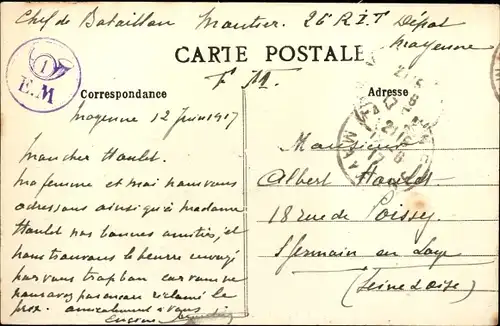 Chef de Bataillon Mautier. 26 R.I.T Dépôt
Mayenne
CARTE POSTALE
F M.
1
E.M
Correspondance
Adresse
Mayenne 12 Juin 1917
Mon cher Hoult
Ma femme et moi nous vous
adressons ainsi qu'à Madame
Hoult nos bonnes amitiés, et
nous trouvons le beurre envoyé
par vous trop bon car vous ne
nous avez pas encore réclamé le
prix. amicalement à vous
Eugène
Monsieur
Albert Hoult
18 rue de Poissy
St Germain en Laye
(Seine & Oise)